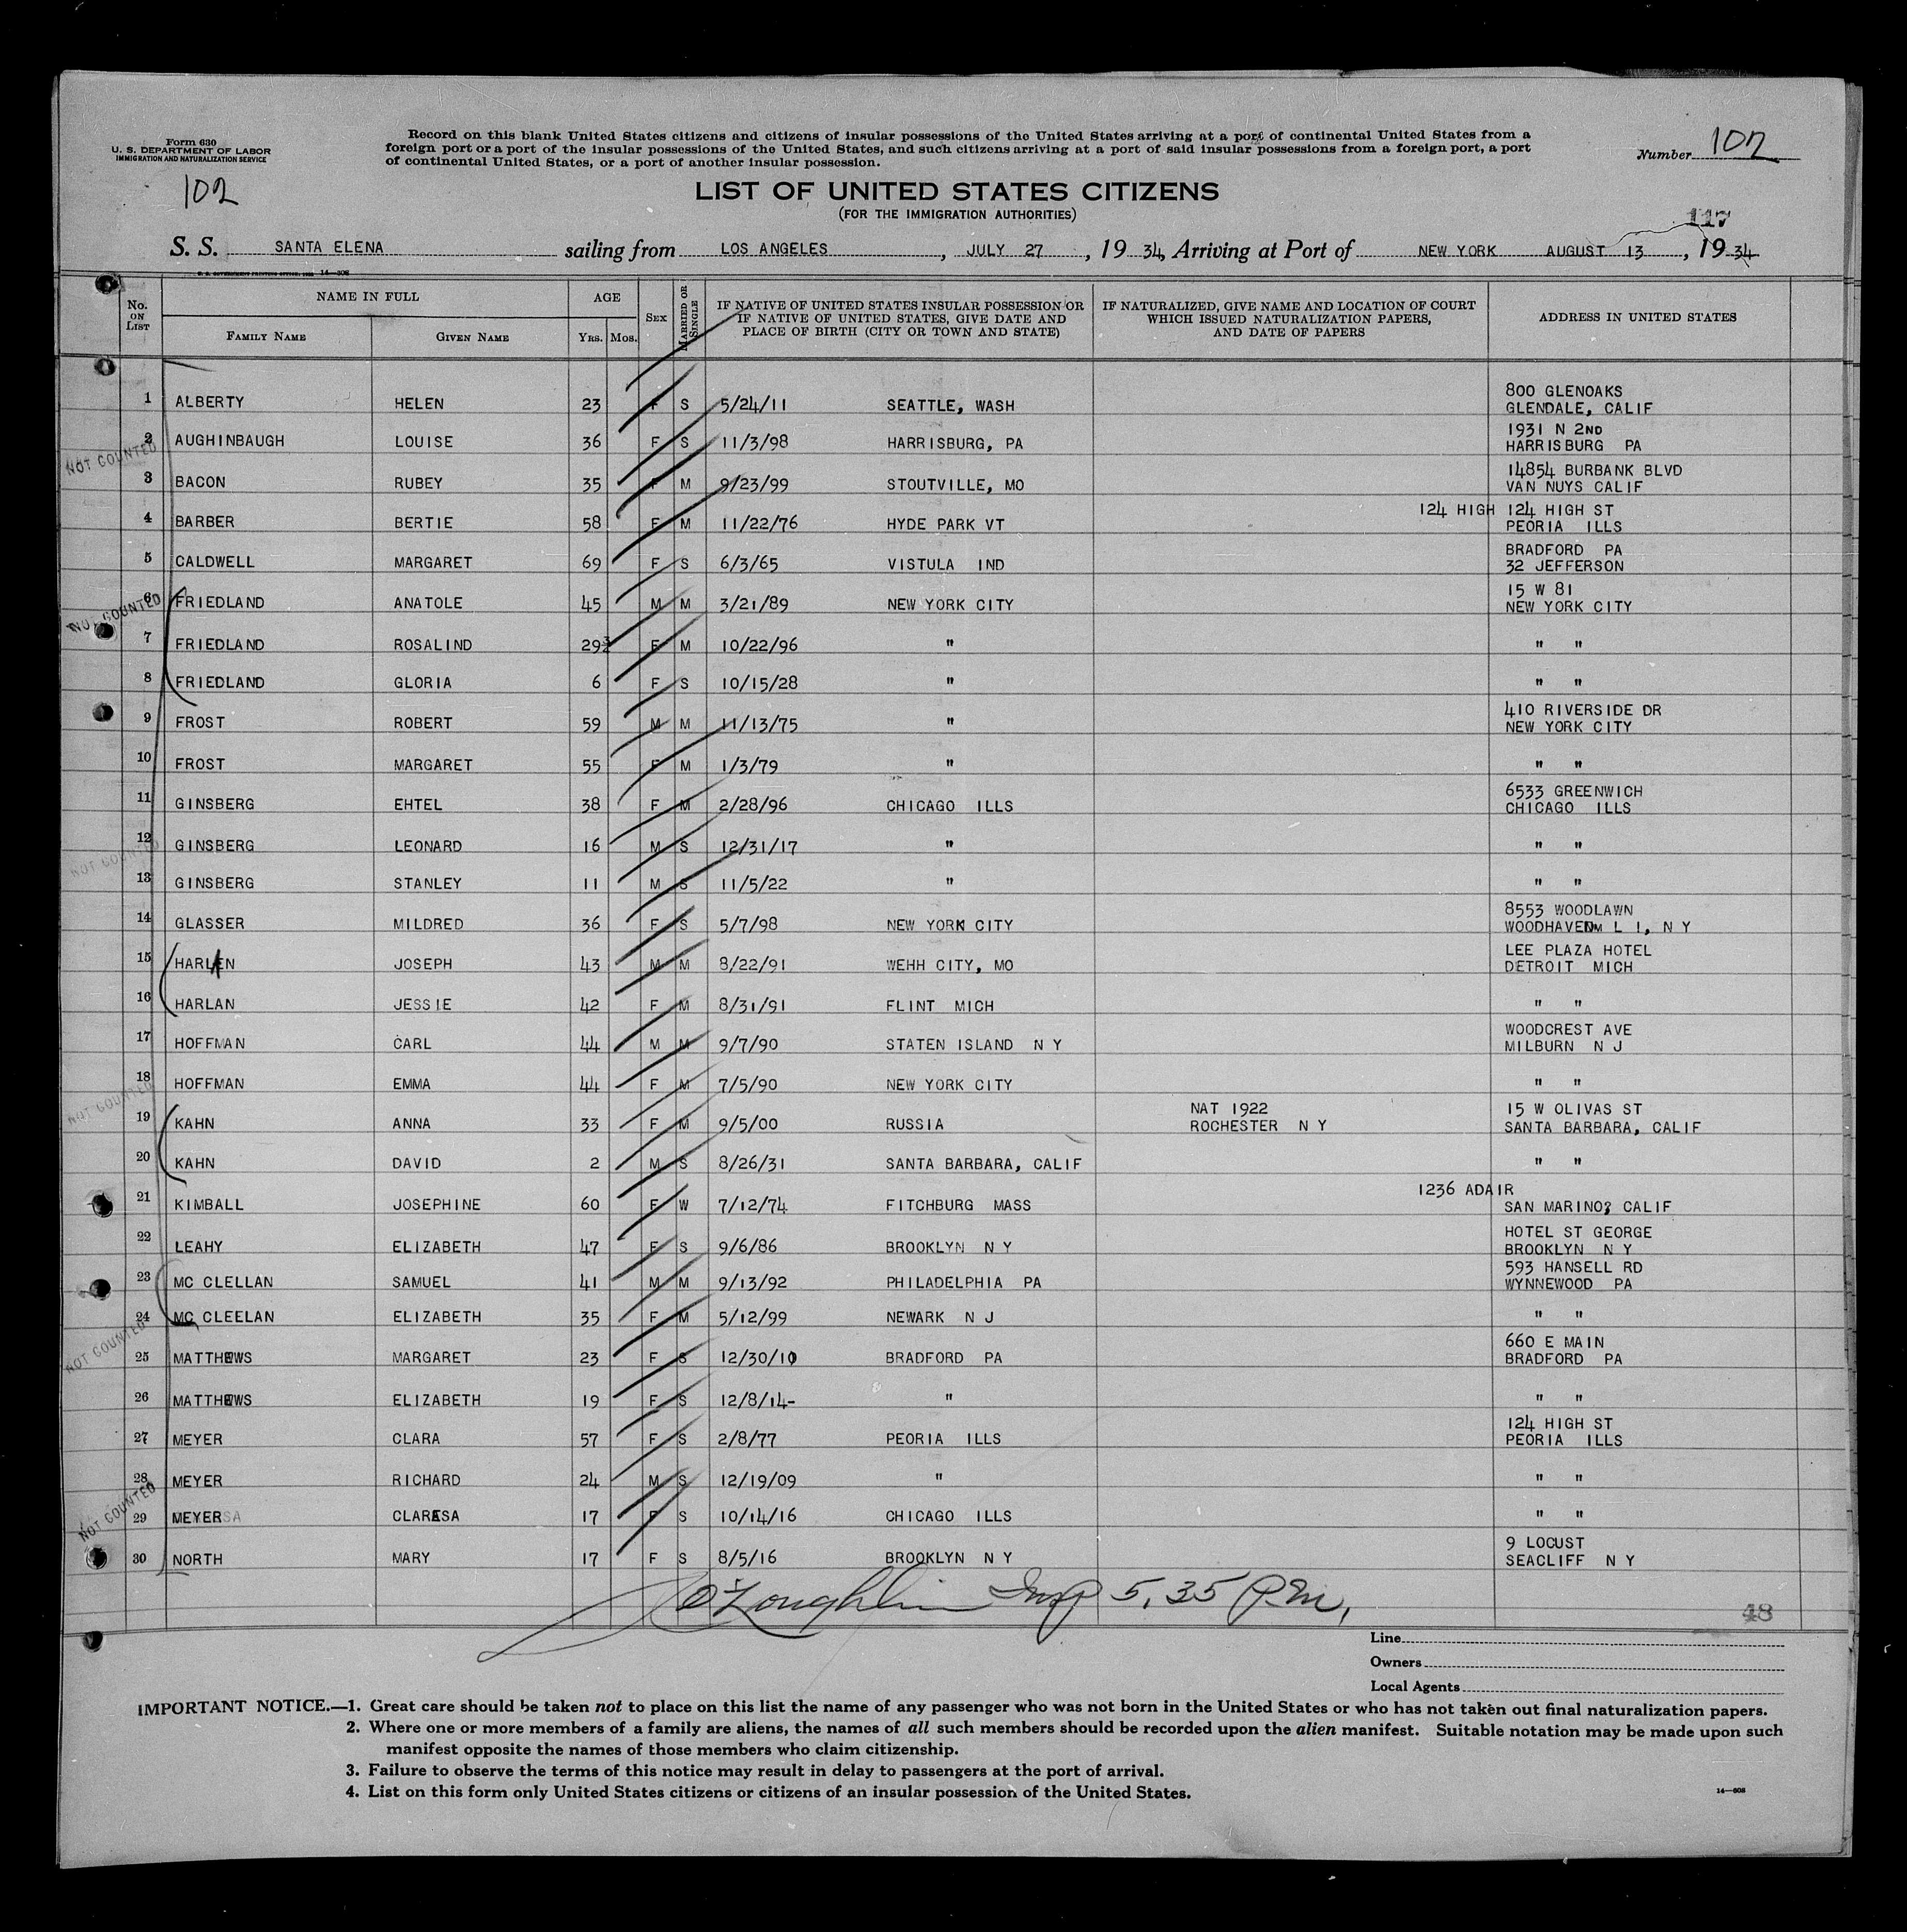 Form 630
U. S. DEPARTMENT OF LABOR
IMMIGRATION AND NATURALIZATION SERVICE
Record on this blank United States citizens and citizens of insular possessions of the United States arriving at a port of continental United States from a
foreign port or a port of the insular possessions of the United States, and such citizens arriving at a port of said insular possessions from a foreign port, a port
of continental United States, or a port of another insular possession.
Number 102
102
LIST OF UNITED STATES CITIZENS
(FOR THE IMMIGRATION AUTHORITIES)
117
S. S. SANTA ELENA sailing from LOS ANGELES, JULY 27, 1934, Arriving at Port of NEW YORK AUGUST 13, 1934
No. ON LIST NAME IN FULL AGE SEX MARRIED OR SINGLE IF NATIVE OF UNITED STATES INSULAR POSSESSION OR IF NATIVE OF UNITED STATES, GIVE DATE AND PLACE OF BIRTH (CITY OR TOWN AND STATE) IF NATURALIZED, GIVE NAME AND LOCATION OF COURT WHICH ISSUED NATURALIZATION PAPERS, AND DATE OF PAPERS ADDRESS IN UNITED STATES
FAMILY NAME GIVEN NAME YRS. MOS.
800 GLENOAKS
1 ALBERTY HELEN 23 F S 5/24/11 SEATTLE, WASH GLENDALE, CALIF
1931 N 2ND
2 AUGHINBAUGH LOUISE 36 F S 11/3/98 HARRISBURG, PA HARRISBURG PA
NOT COUNTED
14854 BURBANK BLVD
3 BACON RUBEY 35 F M 9/23/99 STOUTVILLE, MO VAN NUYS CALIF
124 HIGH 124 HIGH ST
4 BARBER BERTIE 58 F M 11/22/76 HYDE PARK VT PEORIA ILLS
BRADFORD PA
5 CALDWELL MARGARET 69 F S 6/3/65 VISTULA IND 32 JEFFERSON
15 W 81
6 FRIEDLAND ANATOLE 45 M M 3/21/89 NEW YORK CITY NEW YORK CITY
NOT COUNTED
7 FRIEDLAND ROSALIND 29 F M 10/22/96 " " "
8 FRIEDLAND GLORIA 6 F S 10/15/28 " " "
410 RIVERSIDE DR
9 FROST ROBERT 59 M M 11/13/75 " NEW YORK CITY
10 FROST MARGARET 55 F M 1/3/79 " " "
6533 GREENWICH
11 GINSBERG EHTEL 38 F M 2/28/96 CHICAGO ILLS CHICAGO ILLS
12 GINSBERG LEONARD 16 M S 12/31/17 " " "
NOT COUNTED
13 GINSBERG STANLEY 11 M S 11/5/22 " " "
8553 WOODLAWN
14 GLASSER MILDRED 36 F S 5/7/98 NEW YORK CITY WOODHAVENM L I, N Y
LEE PLAZA HOTEL
15 HARLAN JOSEPH 43 M M 8/22/91 WEHH CITY, MO DETROIT MICH
16 HARLAN JESSIE 42 F M 8/31/91 FLINT MICH " "
WOODCREST AVE
17 HOFFMAN CARL 44 M M 9/7/90 STATEN ISLAND N Y MILBURN N J
18 HOFFMAN EMMA 44 F M 7/5/90 NEW YORK CITY " "
NOT COUNTED
NAT 1922 15 W OLIVAS ST
19 KAHN ANNA 33 F M 9/5/00 RUSSIA ROCHESTER N Y SANTA BARBARA, CALIF
20 KAHN DAVID 2 M S 8/26/31 SANTA BARBARA, CALIF " "
1236 ADAIR
21 KIMBALL JOSEPHINE 60 F W 7/12/74 FITCHBURG MASS SAN MARINO, CALIF
HOTEL ST GEORGE
22 LEAHY ELIZABETH 47 F S 9/6/86 BROOKLYN N Y BROOKLYN N Y
593 HANSELL RD
23 MC CLELLAN SAMUEL 41 M M 9/13/92 PHILADELPHIA PA WYNNEWOOD PA
24 MC CLEELAN ELIZABETH 35 F M 5/12/99 NEWARK N J " "
NOT COUNTED
660 E MAIN
25 MATTHEWS MARGARET 23 F S 12/30/10 BRADFORD PA BRADFORD PA
26 MATTHEWS ELIZABETH 19 F S 12/8/14- " " "
124 HIGH ST
27 MEYER CLARA 57 F S 2/8/77 PEORIA ILLS PEORIA ILLS
28 MEYER RICHARD 24 M S 12/19/09 " " "
NOT COUNTED
29 MEYER CLARESA 17 F S 10/14/16 CHICAGO ILLS " "
9 LOCUST
30 NORTH MARY 17 F S 8/5/16 BROOKLYN N Y SEACLIFF N Y
O'Loughlin Insp 5.35 P.M.
48
Line
Owners
Local Agents
IMPORTANT NOTICE.—1. Great care should be taken not to place on this list the name of any passenger who was not born in the United States or who has not taken out final naturalization papers.
2. Where one or more members of a family are aliens, the names of all such members should be recorded upon the alien manifest. Suitable notation may be made upon such
manifest opposite the names of those members who claim citizenship.
3. Failure to observe the terms of this notice may result in delay to passengers at the port of arrival.
4. List on this form only United States citizens or citizens of an insular possession of the United States.
14—608